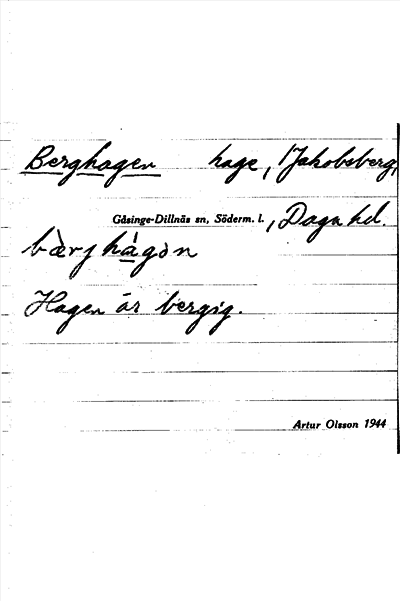 Berghagen hage, Jakobsberg,
Gåsinge-Dillnäs sn, Söderm. l., Daga hd.
bæ̀rjhágən
Hagen är bergig.
Artur Olsson 1944